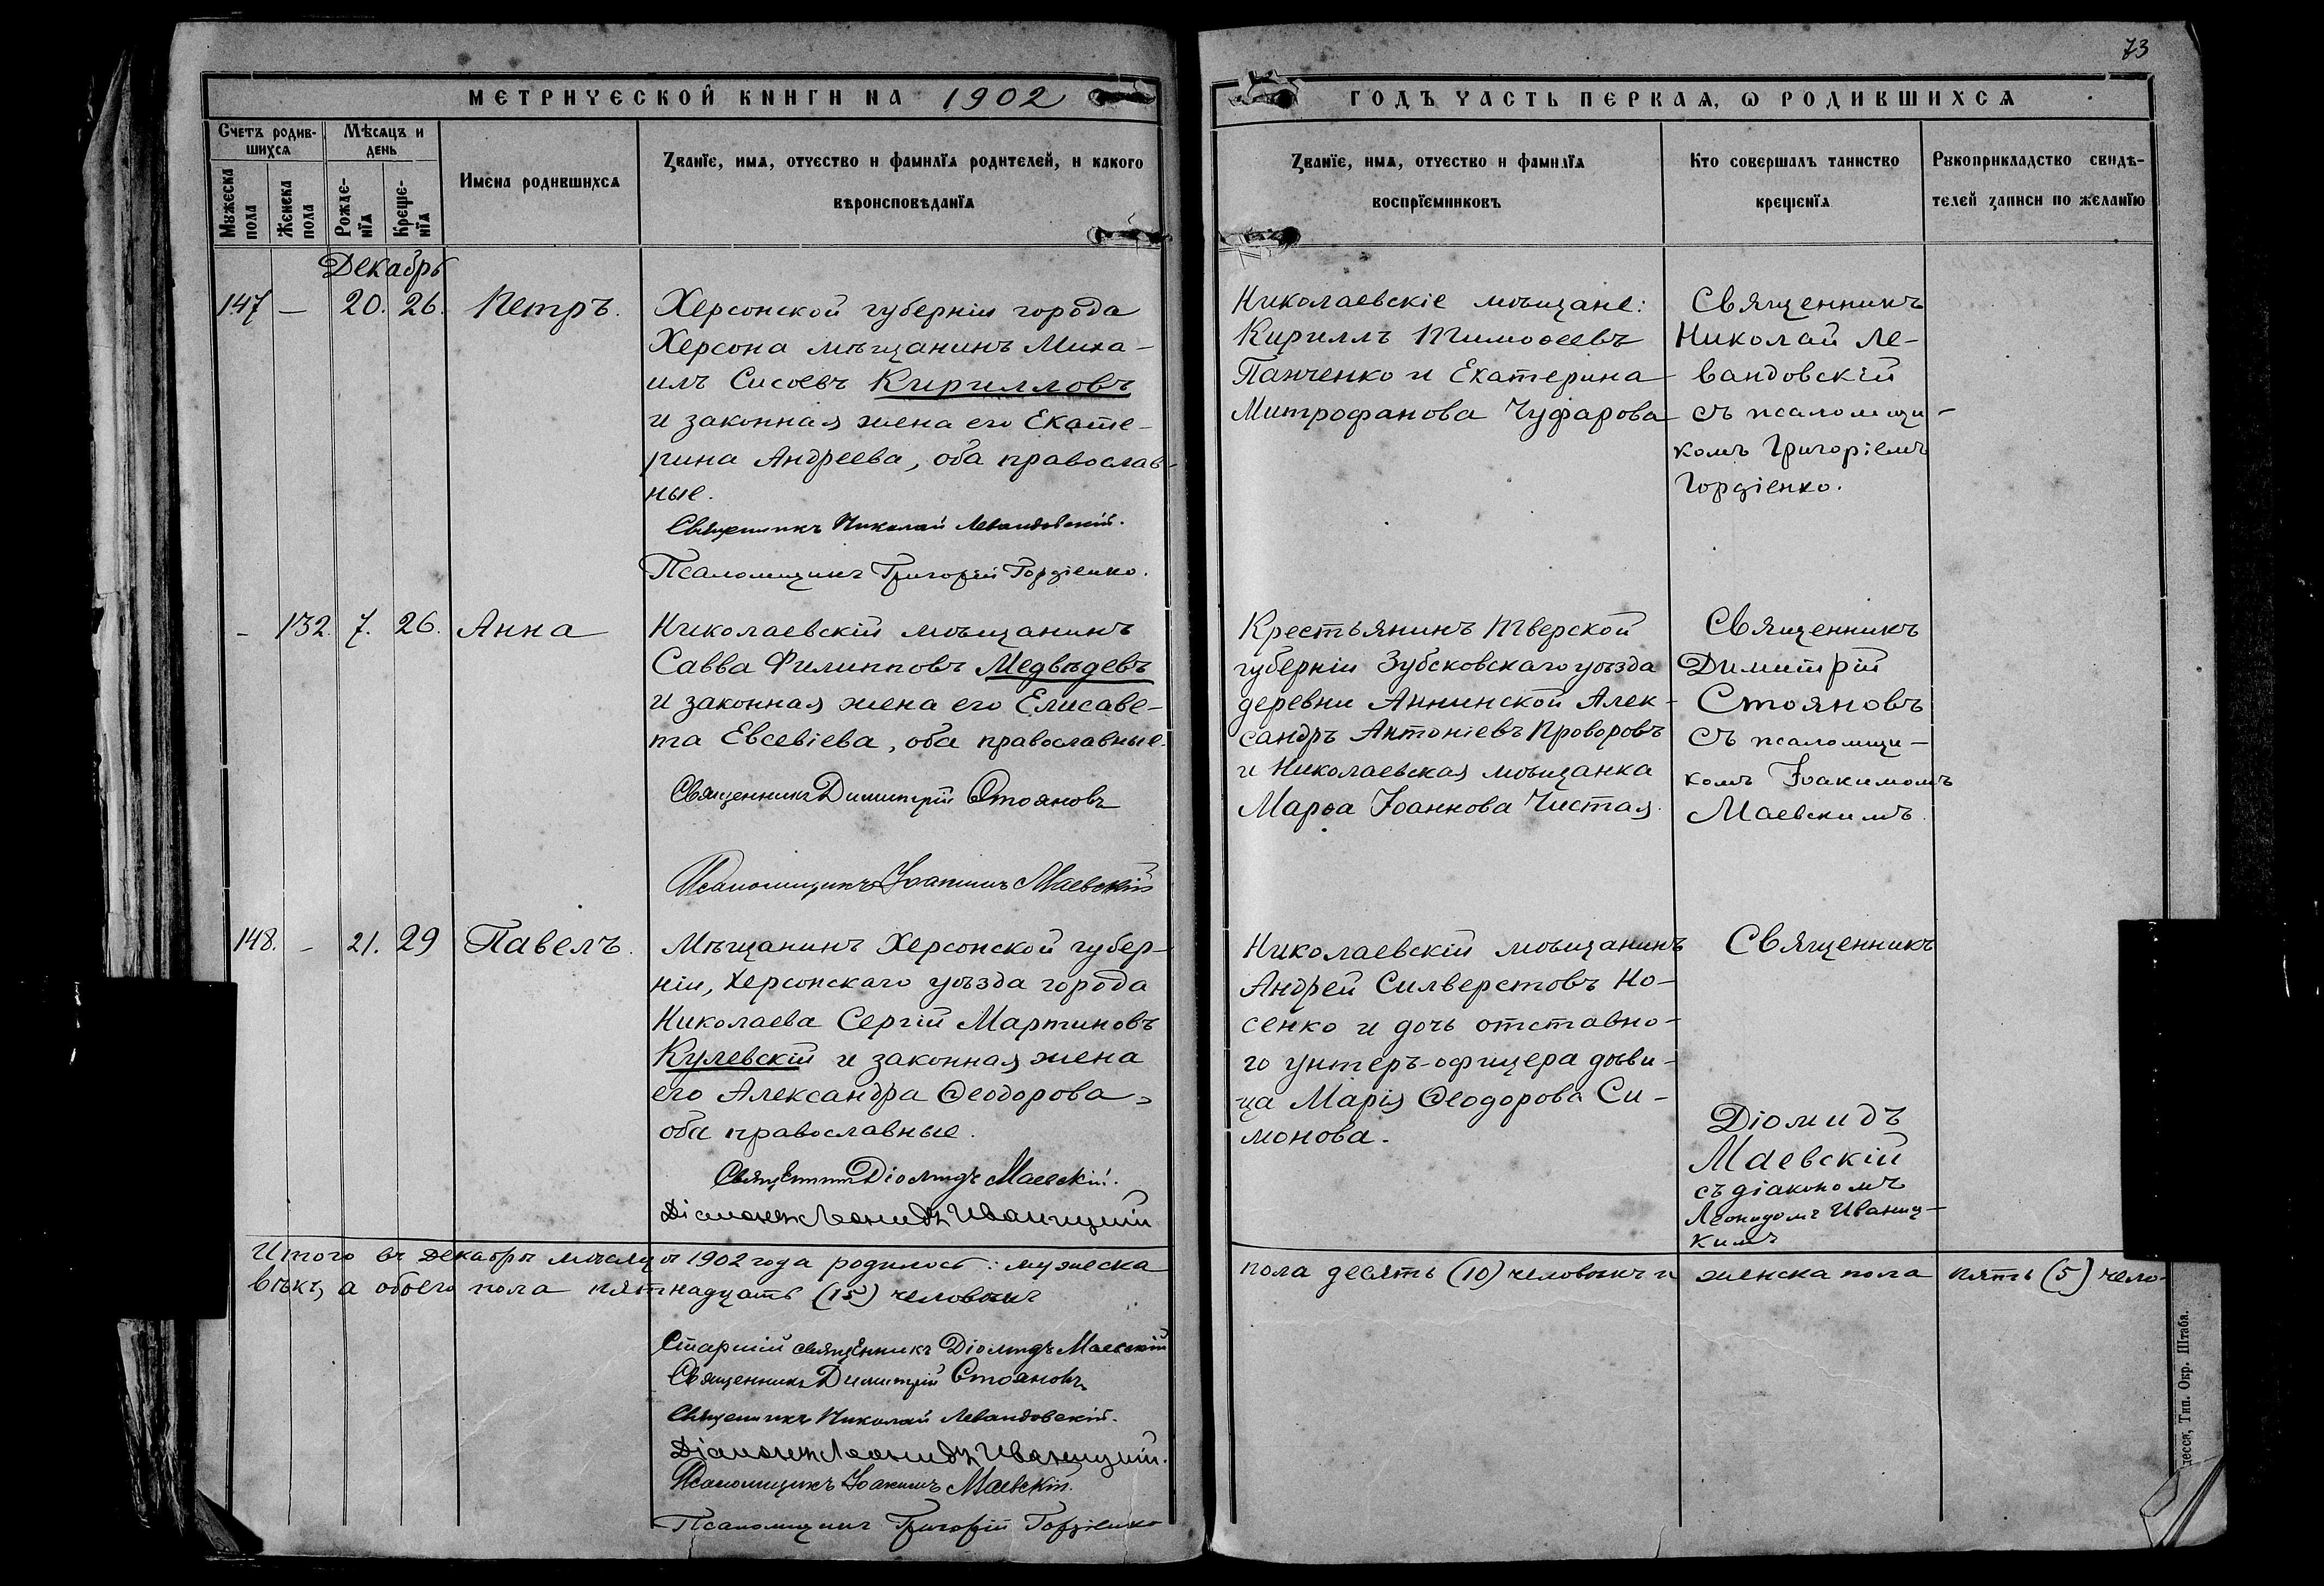 73
МЕТРИЧЕСКОЙ КНИГИ НА 1902
ГОДЪ ЧАСТЬ ПЕРВАЯ, Ѡ РОДИВШИХСЯ
Счетъ родив-
шихся
Мѣсяцъ и
день
Мужеска
пола
Женска
пола
Рожде-
нїя
Креще-
нїя
Имена родившихся
Званїе, имя, отчество и фамилїя родителей, и какого
вѣроисповѣданїя
Званїе, имя, отчество и фамилїя
воспрїемниковъ
Кто совершалъ таинство
крещенїя
Рукоприкладство свидѣ-
телей записи по желанїю
Декабрь
147 — 20. 26. Петръ.
Херсонской губерніи города
Херсона мѣщанинъ Миха-
илъ Сисоевъ Кирилловъ
и законная жена его Екате-
рина Андреева, оба православ-
ные.
Священникъ Николай Левандовскій.
Псаломщикъ Григорій Гордіенко.
Николаевскіе мѣщане:
Кириллъ Тимоѳеевъ
Панченко и Екатерина
Митрофанова Чуфарова
Священникъ
Николай Ле-
вандовскій
съ псаломщи-
комъ Григоріемъ
Гордіенко.
- 132. 7. 26. Анна
Николаевскій мѣщанинъ
Савва Филипповъ Медвѣдевъ
и законная жена его Елисаве-
та Евсевіева, оба православные.
Священникъ Димитрій Стояновъ
Псаломщикъ Іоакимъ Маевскій
Крестьянинъ Тверской
губерніи Зубсковскаго уѣзда
деревни Аннинской Алек-
сандръ Антоніевъ Проворовъ
и Николаевская мѣщанка
Марѳа Іоаннова Чистая.
Священникъ
Димитрій
Стояновъ
съ псаломщи-
комъ Іоакимомъ
Маевскимъ
148. - 21. 29 Павелъ.
Мѣщанинъ Херсонской губер-
ніи, Херсонскаго уѣзда города
Николаева Сергій Мартиновъ
Кулевскій и законная жена
его Александра Ѳеодорова,
оба православные.
Священникъ Діомидъ Маевскій.
Діаконъ Леонидъ Иваницкій
Николаевскій мѣщанинъ
Андрей Силверстовъ Но-
сенко и дочь отставно-
го унтеръ-офицера дѣви-
ца Марія Ѳеодорова Си-
монова.
Священникъ
Діомидъ
Маевскій
съ діакономъ
Леонидомъ Иваниц-
кимъ
Итого въ Декабрѣ мѣсяцѣ 1902 года родилось: мужеска
пола десять (10) человѣкъ и женска пола пять (5) чело-
вѣкъ, а обоего пола пятнадцать (15) человѣкъ
Старшій священникъ Діомидъ Маевскій
Священникъ Димитрій Стояновъ
Священникъ Николай Левандовскій.
Діаконъ Леонидъ Иваницкій.
Псаломщикъ Іоакимъ Маевскій.
Псаломщикъ Григорій Гордіенко
десса, Тип. Окр. Штаба.